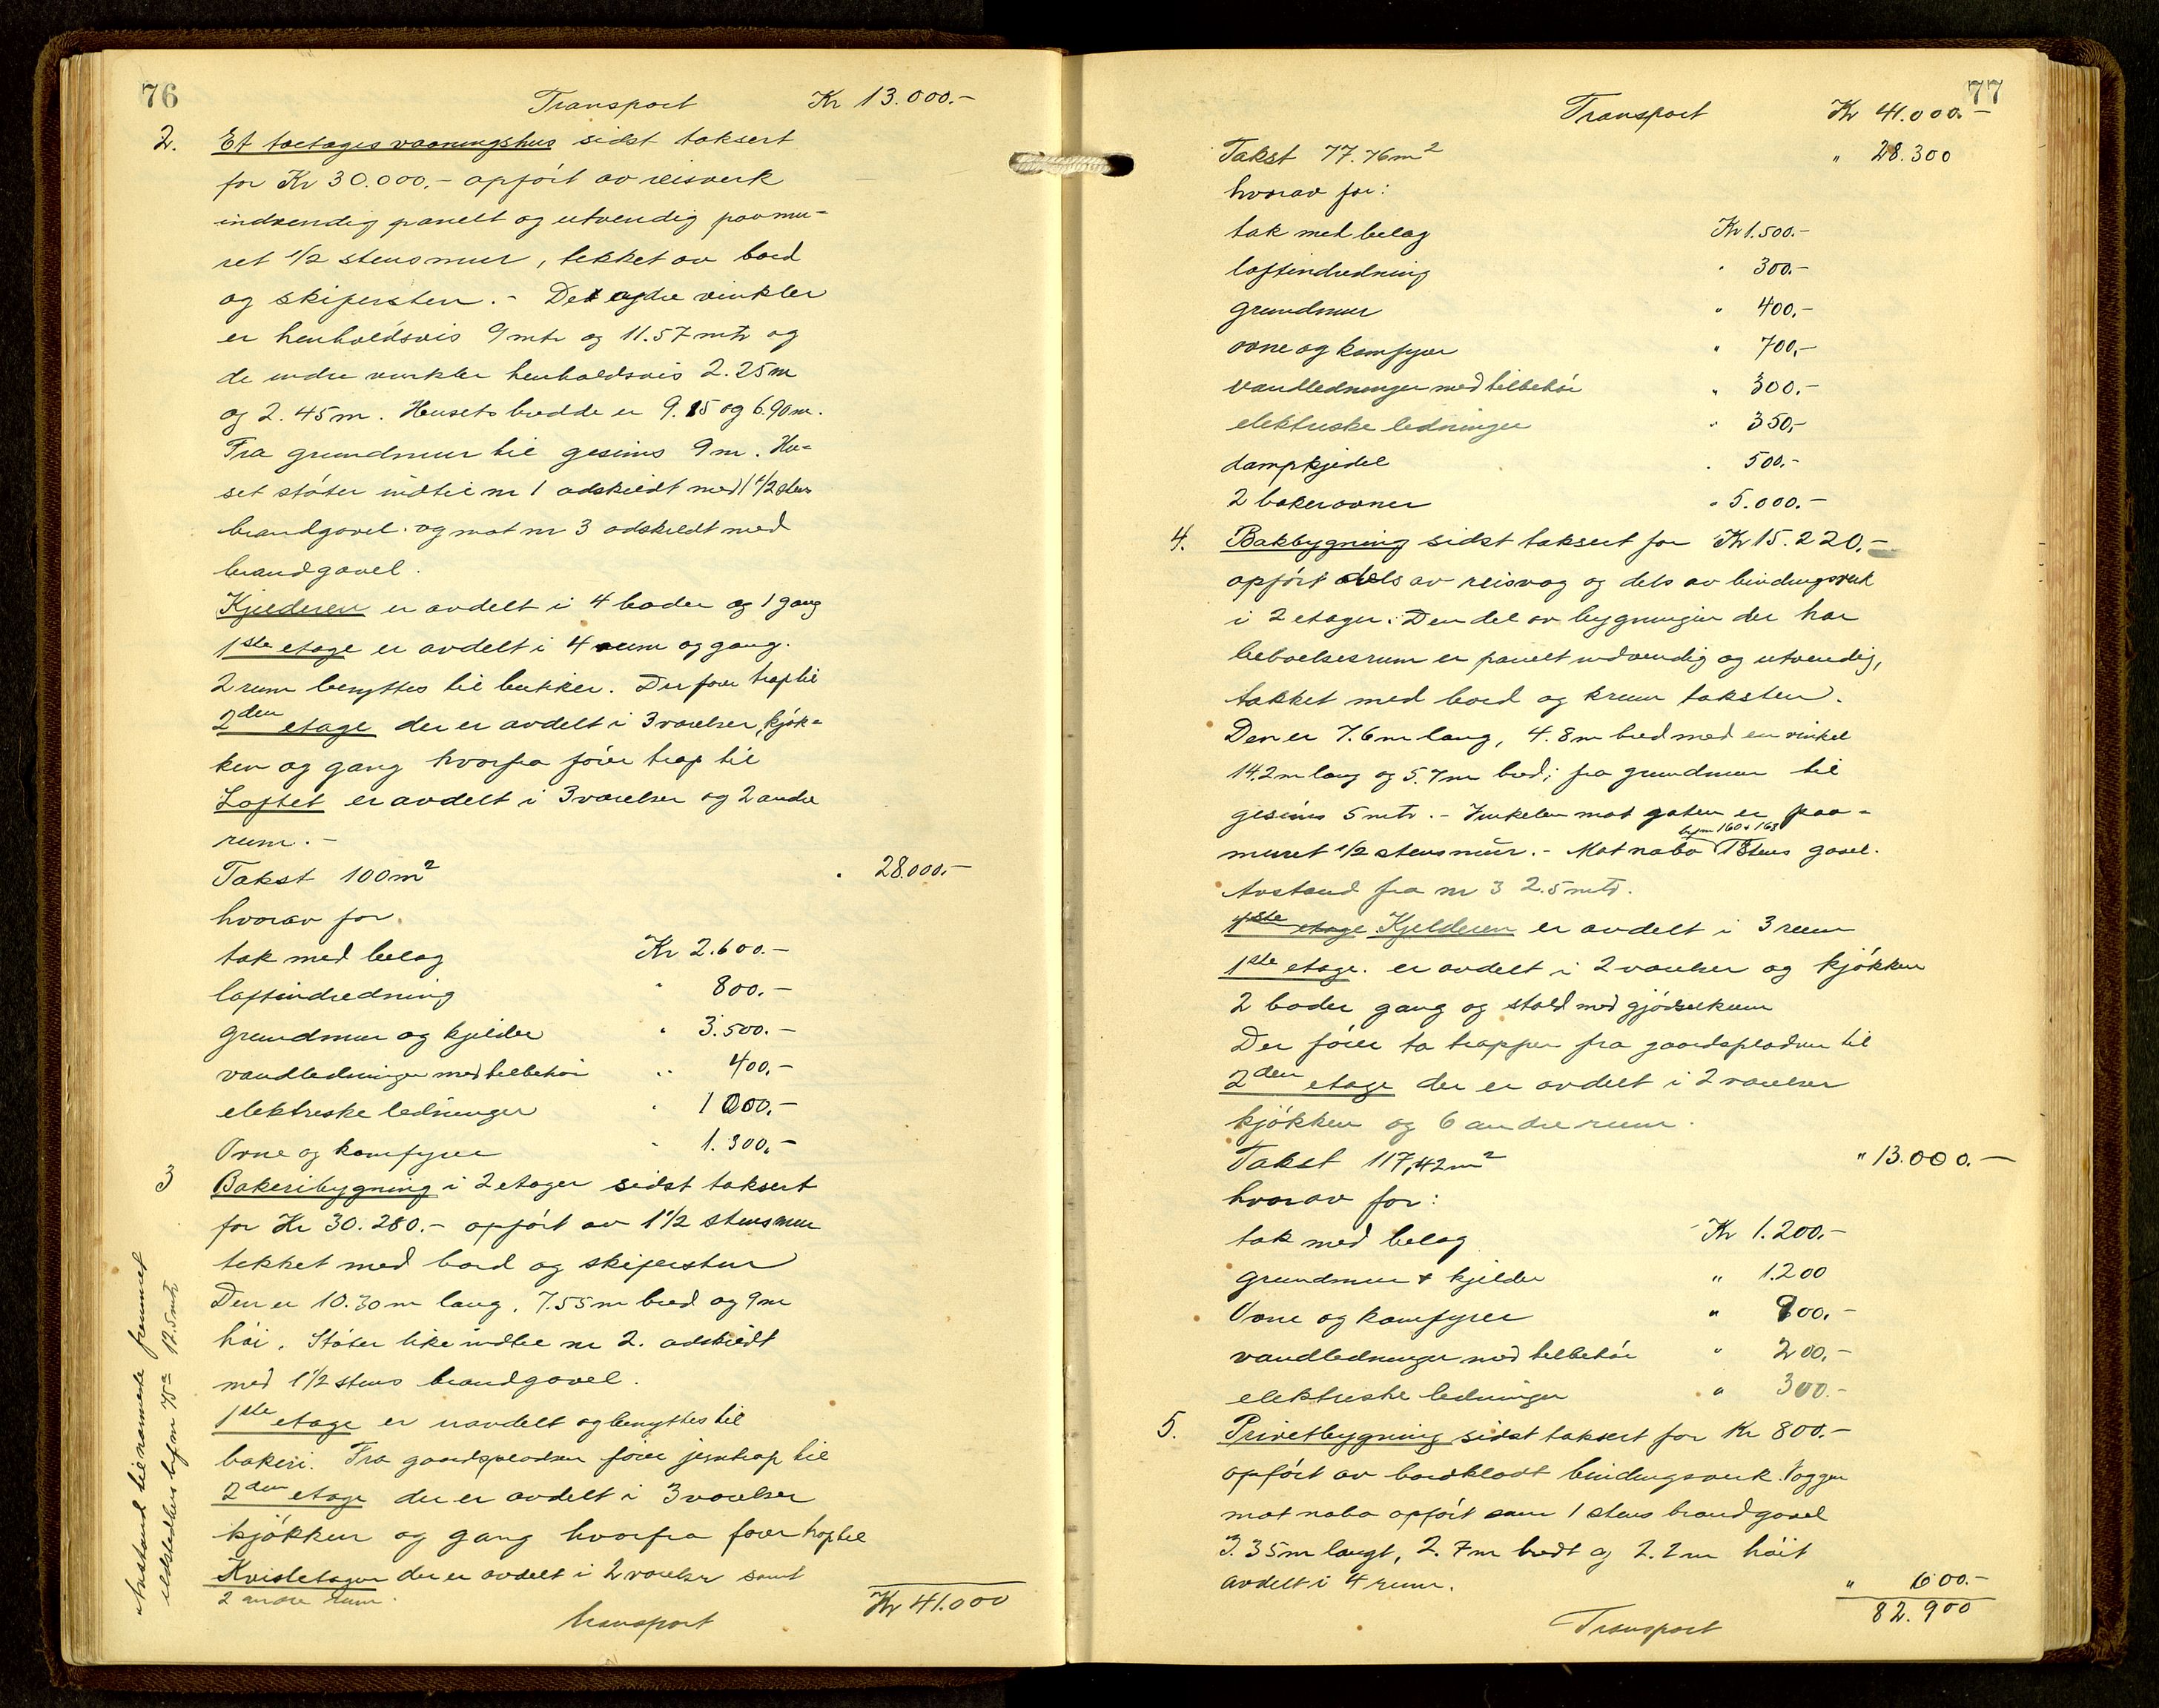 76
Transport Kr 13.000.-
2. Et toetages vaaningshus sidst taksert
for Kr 30.000.- opført av reisverk
indvendig panelt og utvendig paamu-
ret 1/2 stensmur, tekket av bord
og skifersten. - Det ydre vinkler
er henholdsvis 9 mtr og 11.57 mtr og
de indre vinkler henholdsvis 2.25m
og 2.45m. Husets bredde er 9.15 og 6.90m.
Fra grundmur til gesims 9m. Hu-
set støter indtil nr 1 adskildt med 1 1/2 stens
brandgavel. og mot nr 3 adskildt med
brandgavel.
Kjelderen er avdelt i 4 boder og 1 gang
1ste etage er avdelt i 4 rum og gang.
2 rum benyttes til butikker. Der fører trap til
2den etage der er avdelt i 3 værelser, kjøk-
ken og gang hvorfra fører trap til
Loftet er avdelt i 3 værelser og 2 andre
rum. -
Takst 100m2 " 28.000.-
hvorav for
tak med belag Kr 2.600.-
loftindredning " 800.-
grundmur og kjelder " 3.500.-
vandledninger med tilbehør " 400.-
elektriske ledninger " 1000.-
Ovne og komfyrer " 1.300.-
3 Bakeribygning i 2 etager sidst taksert
for Kr 30.280.- opført av 1 1/2 stensmur
tekket med bord og skifersten
Den er 10.30m lang, 7.55m bred og 9m
høi. Støter like indtil nr 2. adskildt
med 1 1/2 stens brandgavel.
1ste etage er uavdelt og benyttes til
bakeri. Fra gaardspladsen fører jerntrap til
2den etage der er avdelt i 3 værelser
kjøkken og gang hvorfra fører trap til
Kvistetagen der er avdelt i 2 værelser samt
2 andre rum.
transport Kr 41.000
Avstand til nærmeste fremmet
ildsted hus bnr 78a 12.5 mtr
77
Transport Kr 41.000.-
Takst 77.76m2 " 28.300
hvorav for:
tak med belag Kr 1.500.-
loftindredning " 300.-
grundmur " 400.-
ovne og komfyrer " 700.-
vandledninger med tilbehør " 300.-
elektriske ledninger " 350.-
dampkjedel " 500.-
2 bakerovner " 5.000.-
4. Bakbygning sidst taksert for Kr 15.220.-
opført dels av reisverk og dels av bindingsverk
i 2 etager. Den del av bygningen der har
beboelsesrum er panelt indvendig og utvendig,
takket med bord og krum taksten.
Den er 7.6m lang, 4.8m bred med en vinkel
14.2m lang og 5.7m bred; fra grundmur til
gesims 5 mtr. - Vinkelen mot gaten er paa-
muret 1/2 stensmur. - Mot nabo bnr 160 & 163 1 stens gavel.
Avstand fra nr 3 2.5 mtr.
1ste etage Kjelderen er avdelt i 3 rum
1ste etage. er avdelt i 2 værelser og kjøkken
2 boder gang og stald med gjødselkum
Der fører to trapper fra gaardspladsen til
2den etage der er avdelt i 2 værelser
kjøkken og 6 andre rum.
Takst 117,42m2 " 13.000.-
hvorav for:
tak med belag Kr 1.200.-
grundmur & kjelder " 1.200
Ovne og komfyrer " 900.-
vandledninger med tilbehør " 200.-
elektriske ledninger " 300.-
5. Privetbygning sidst taksert for Kr 800.-
opført av bordklædt bindingsverk. Væggen
mot nabo opført som 1 stens brandgavel
3.35m langt, 2.7m bredt og 2.2m høit
avdelt i 4 rum. " 600.-
82.900
Transport